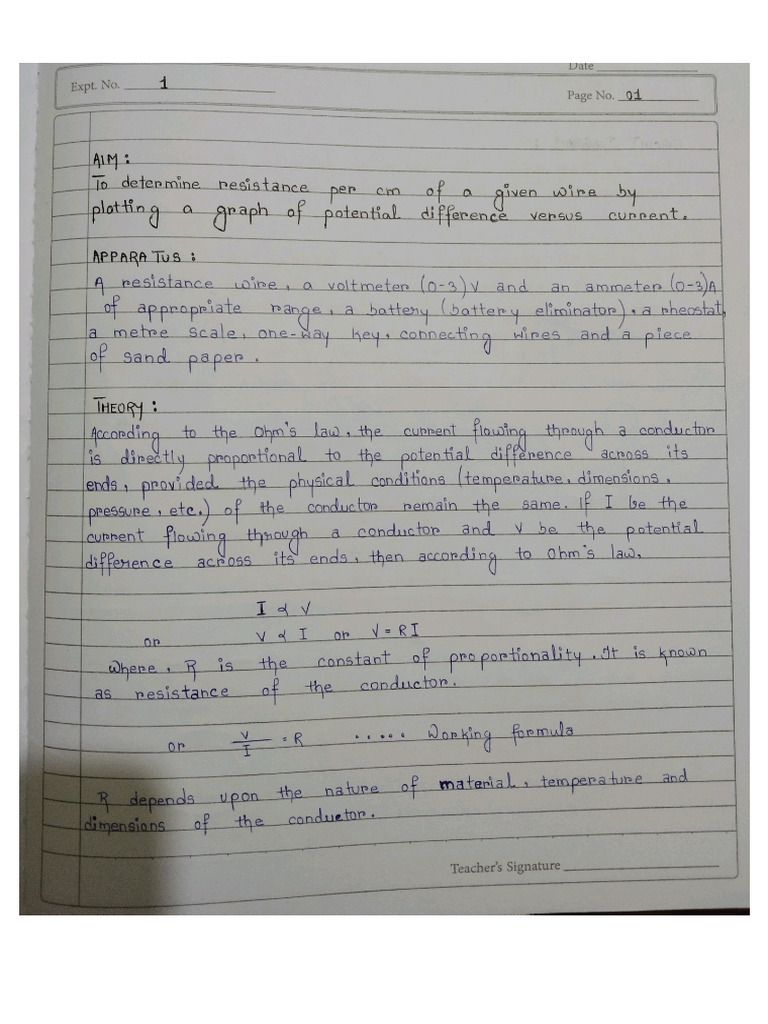 Date
Expt. No. 1
Page No. 01
AIM :
To determine resistance per cm of a given wire by
plotting a graph of potential difference versus current.
APPARATUS :
A resistance wire, a voltmeter (0-3) V and an ammeter (0-3)A
of appropriate range, a battery (battery eliminator), a rheostat,
a metre scale, one-way key, connecting wires and a piece
of sand paper.
THEORY :
According to the Ohm's law, the current flowing through a conductor
is directly proportional to the potential difference across its
ends, provided the physical conditions (temperature, dimensions,
pressure, etc.) of the conductor remain the same. If I be the
current flowing through a conductor and V be the potential
difference across its ends, then according to Ohm's law,
I ∝ V
or V ∝ I or V = RI
where, R is the constant of proportionality. It is known
as resistance of the conductor.
or V/I = R ..... Working formula
R depends upon the nature of material, temperature and
dimensions of the conductor.
Teacher's Signature